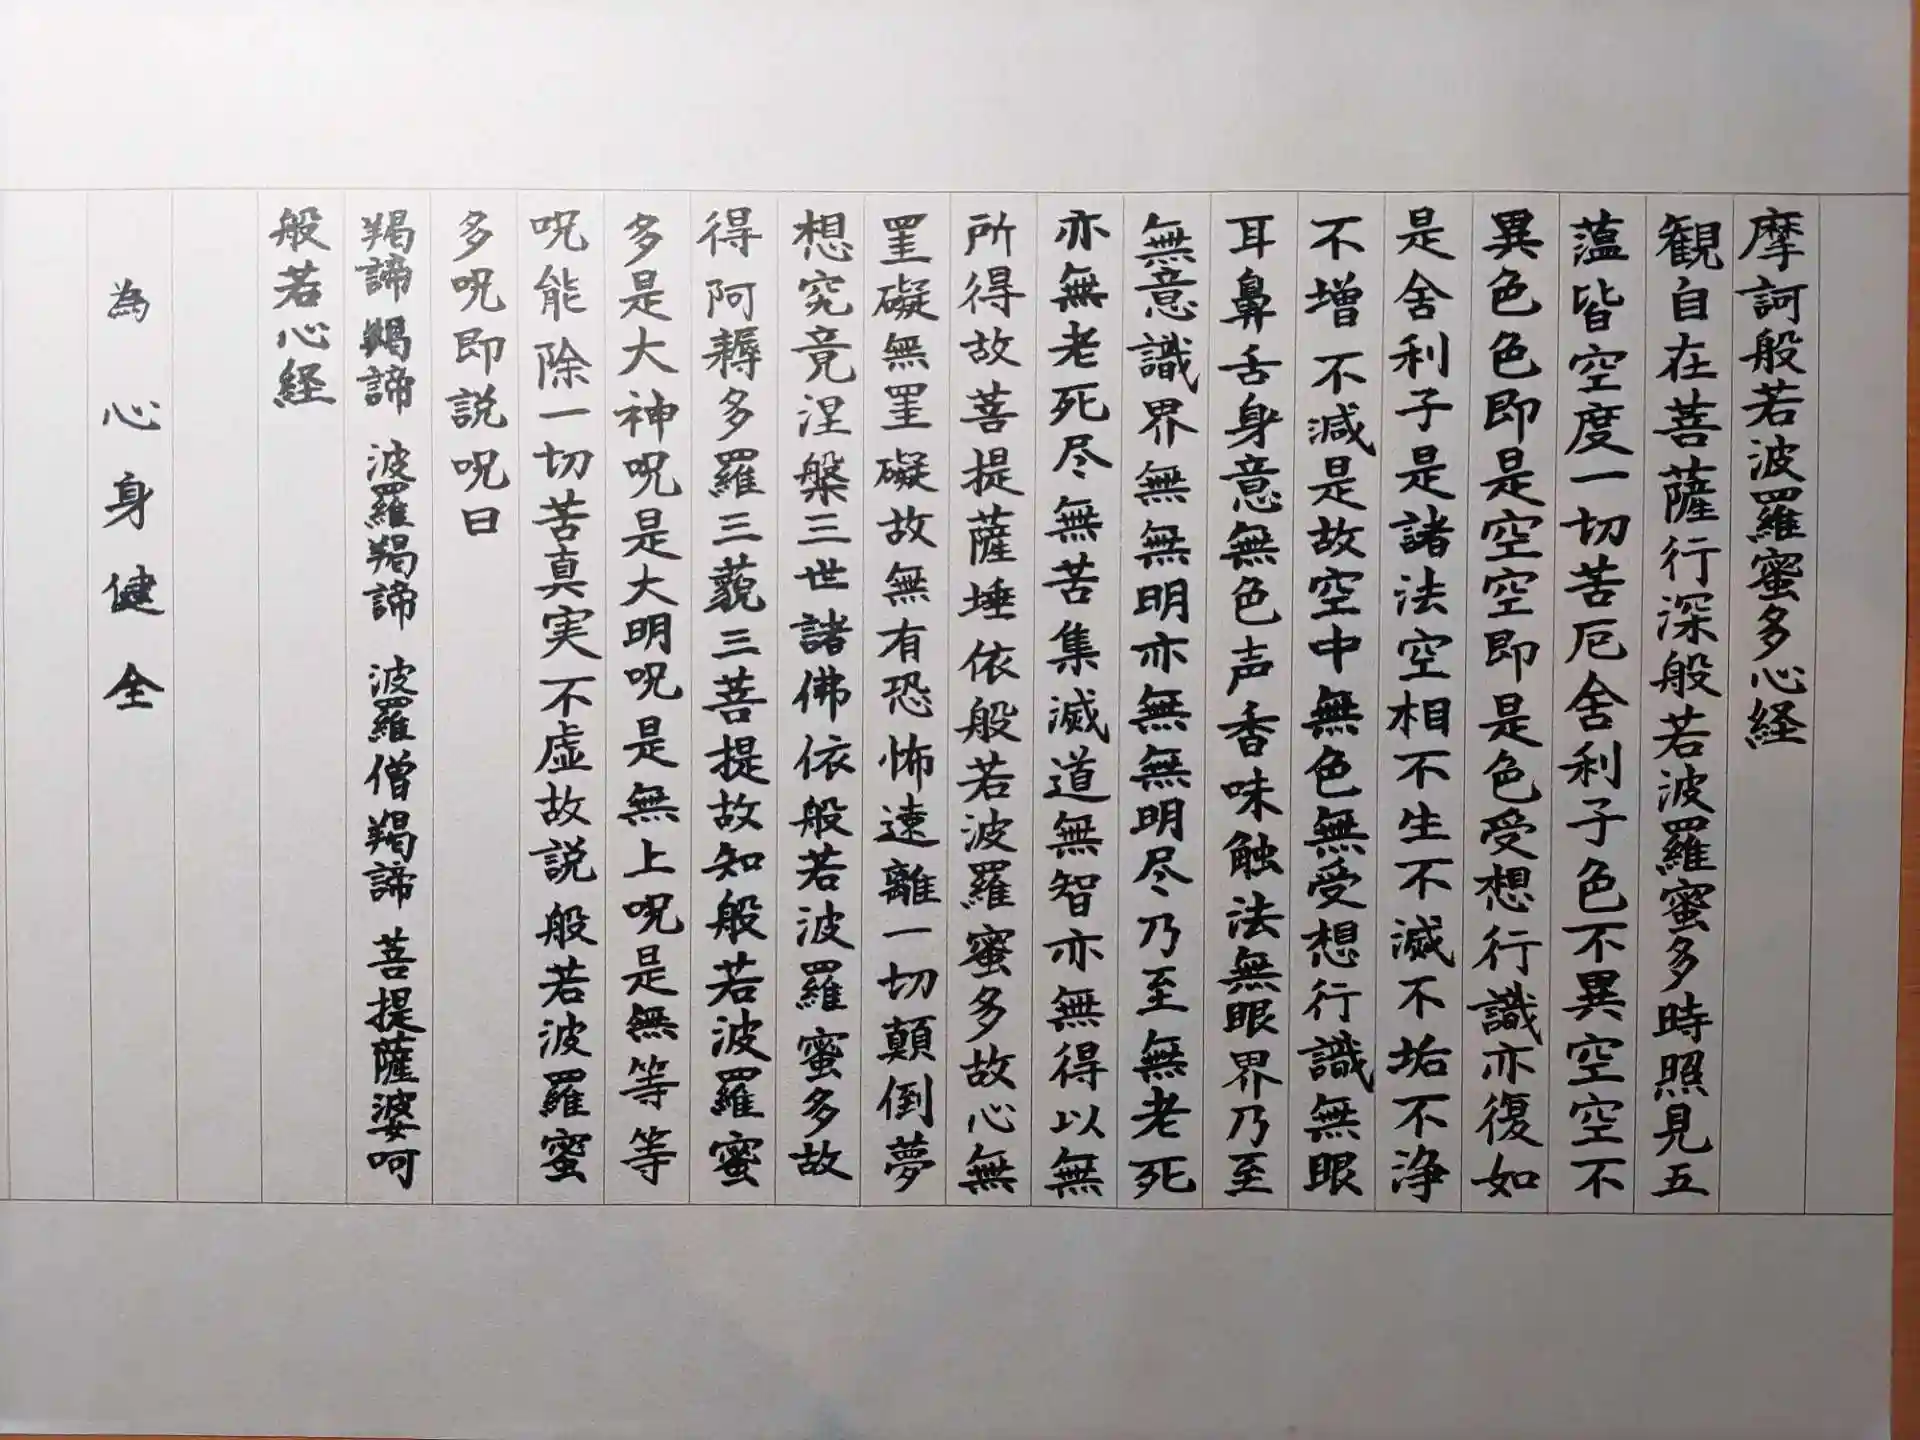 摩訶般若波羅蜜多心経
観自在菩薩行深般若波羅蜜多時照見五
薀皆空度一切苦厄舍利子色不異空空不
異色色即是空空即是色受想行識亦復如
是舍利子是諸法空相不生不滅不垢不浄
不増不減是故空中無色無受想行識無眼
耳鼻舌身意無色声香味触法無眼界乃至
無意識界無無明亦無無明尽乃至無老死
亦無老死尽無苦集滅道無智亦無得以無
所得故菩提薩埵依般若波羅蜜多故心無
罣礙無罣礙故無有恐怖遠離一切顛倒夢
想究竟涅槃三世諸佛依般若波羅蜜多故
得阿耨多羅三藐三菩提故知般若波羅蜜
多是大神呪是大明呪是無上呪是無等等
呪能除一切苦真実不虚故説般若波羅蜜
多呪即説呪曰
羯諦羯諦 波羅羯諦 波羅僧羯諦 菩提薩婆呵
般若心経
為心身健全